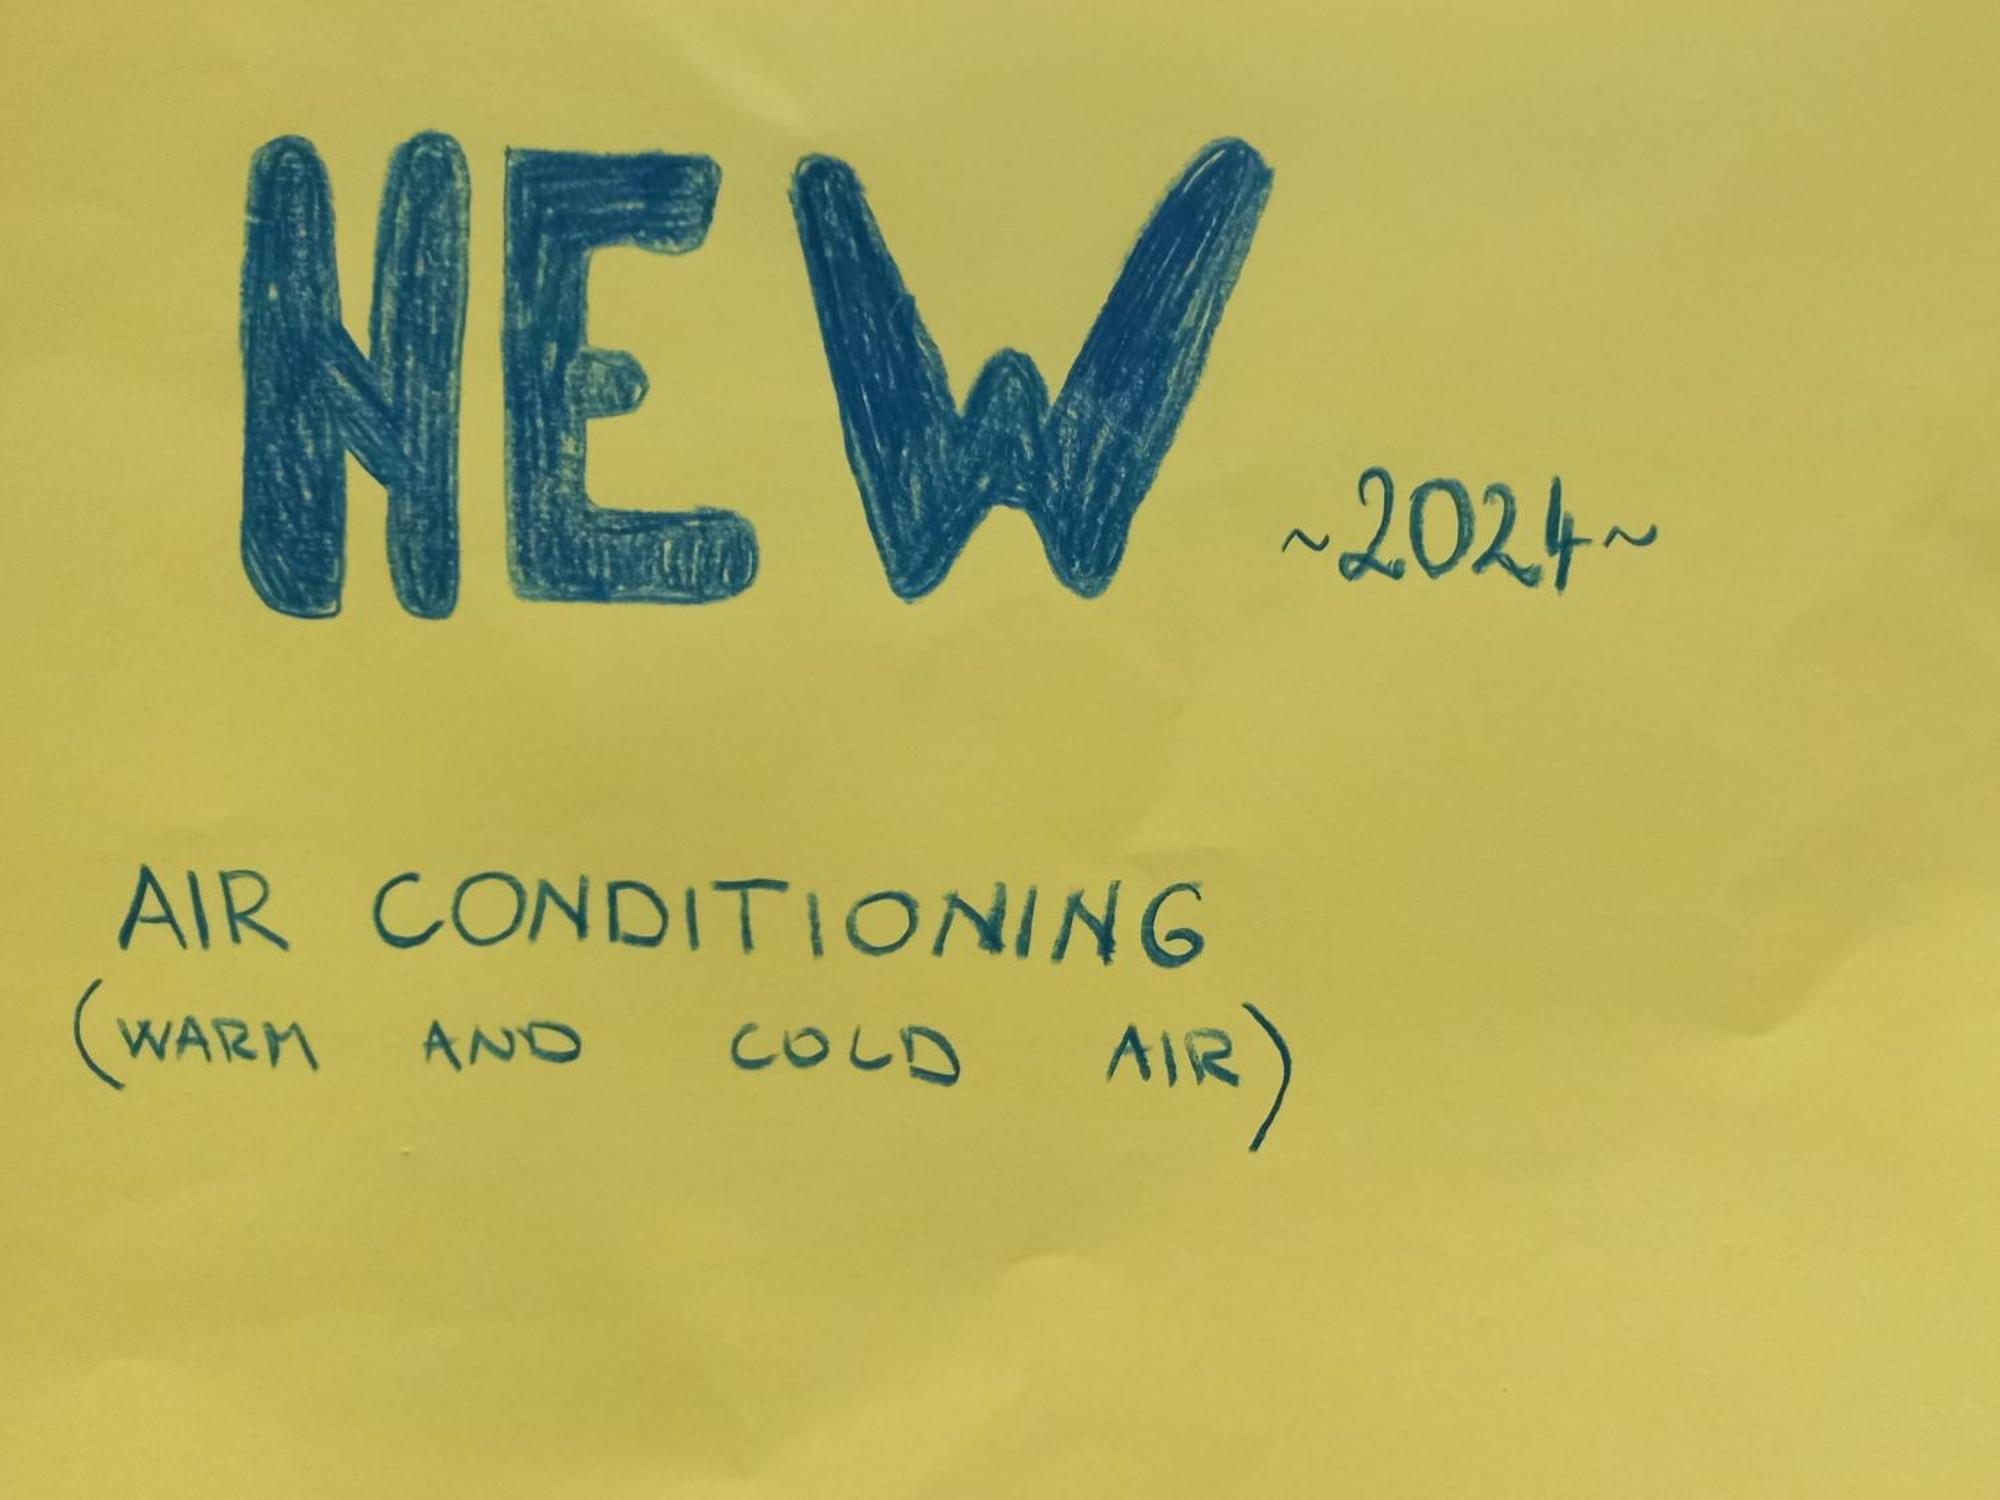 NEW ~2024~
AIR CONDITIONING
(WARM AND COLD AIR)